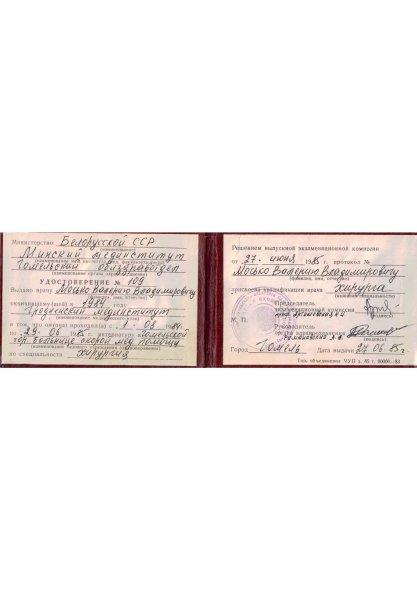 Министерство Белорусской ССР
(наименование)
Минский мединститут
Гомельский облздравотдел
(наименование органа здравоохранения)
УДОСТОВЕРЕНИЕ № 109
Выдано врачу Мосько Валерию Владимировичу
(фамилия, имя, отчество)
окончившему(ей) в 1984 году
Гродненский мединститут
(наименование медицинского вуза)
в том, что он(она) проходил(а) с 1 08 1984
по 29. 06 1985 г. интернатуру Гомельской
гор. больнице скорой мед помощи
по специальности хирургия
Решением выпускной экзаменационной комиссии
от 27. июня 1985 г. протокол №
Мосько Валерию Владимировичу
(фамилия, имя, отчество)
присвоена квалификация врача хирурга
Председатель
экзаменационной комиссии
(подпись)
М. П.
Руководитель
органа здравоохранения
(подпись)
Город Гомель Дата выдачи 27 06 85 г.
Тип. объединения МУП з. 85 т. 60000—83